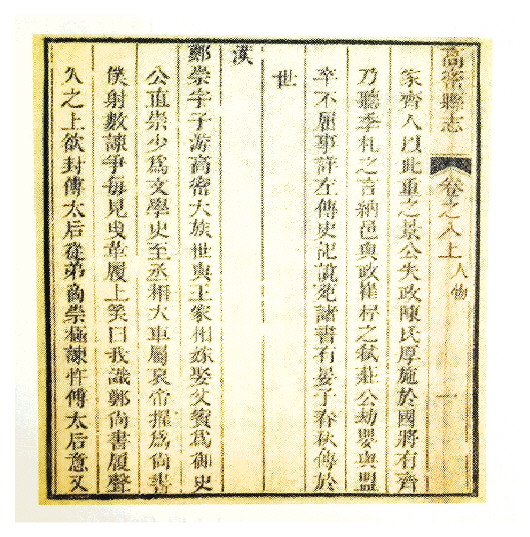 高密縣志
卷之八上 人物 一
家齊人以此重之景公失政陳氏厚施於國將有齊
乃聽季札之言納邑與政崔杼之弒莊公劫嬰與盟
卒不屈事詳左傳史記說苑諸書有晏子春秋傳於
世
漢
鄭崇字子游高密大族世與王家相嫁娶父賓爲御史
公直崇少爲文學史至丞相大車屬哀帝擢爲尚書
僕射數諫爭每見曳革履上笑曰我識鄭尚書履聲
久之上欲封傅太后從弟商崇極諫忤傅太后意又